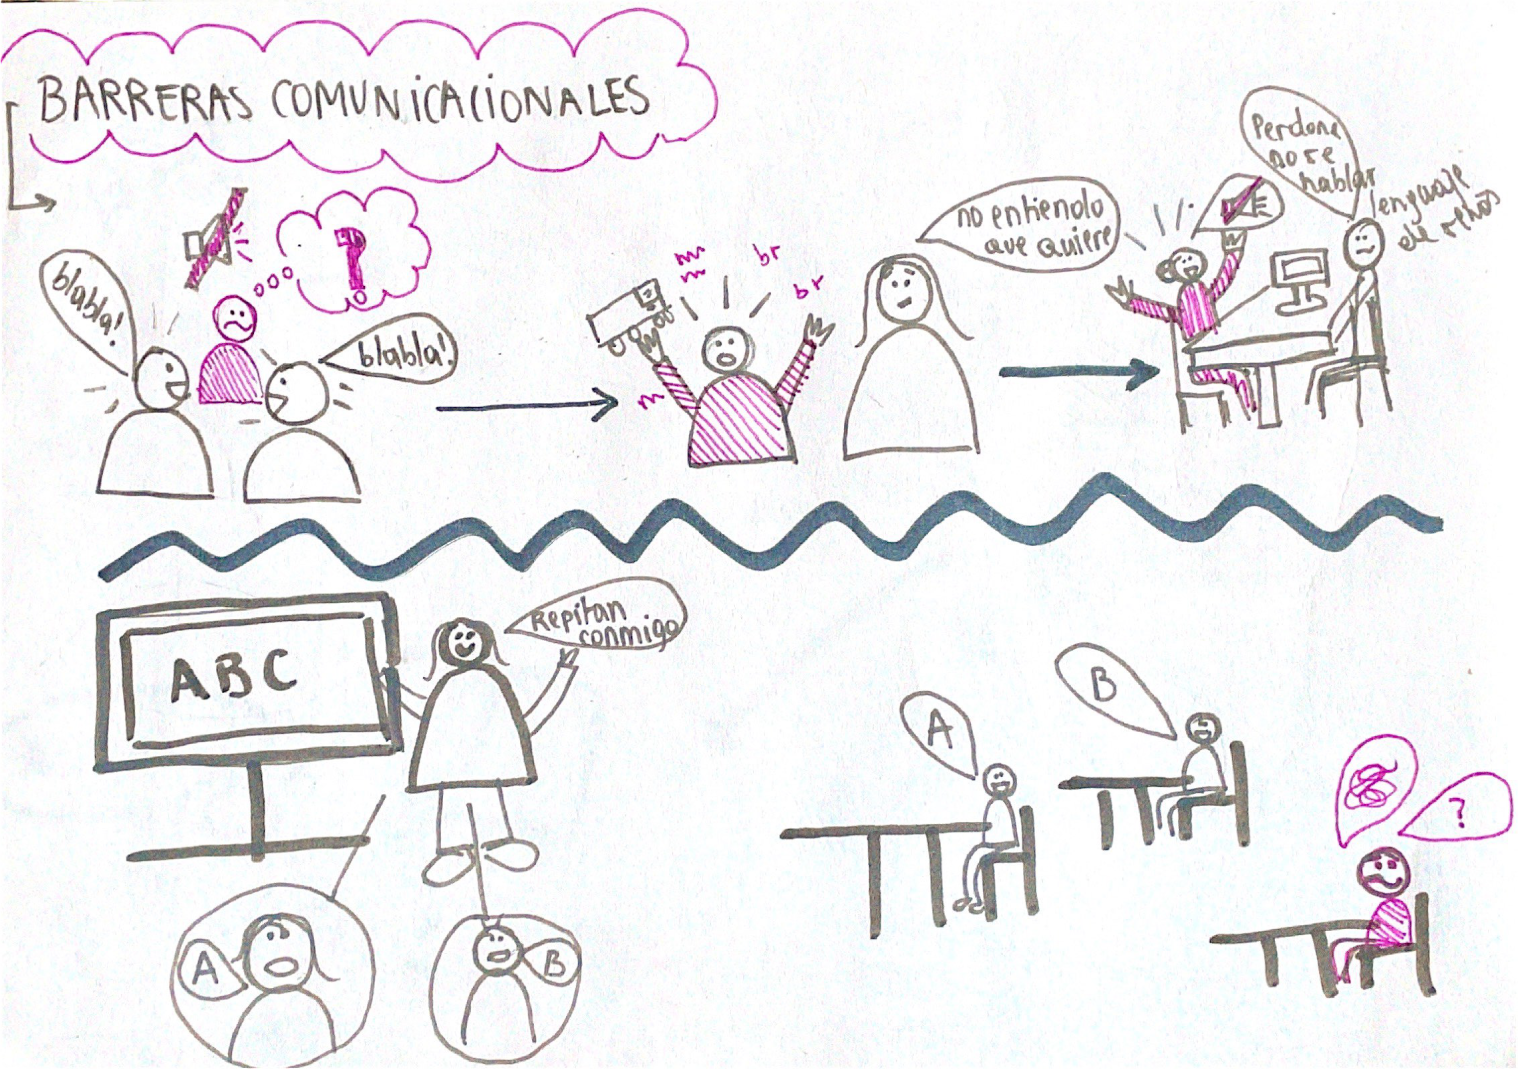 BARRERAS COMUNICACIONALES
blabla!
?
blabla!
m
m
br
br
m
no entiendo
que quiere
Perdona
no se
hablar
lenguaje
de señas
ABC
Repitan
conmigo
A
B
?
A
B